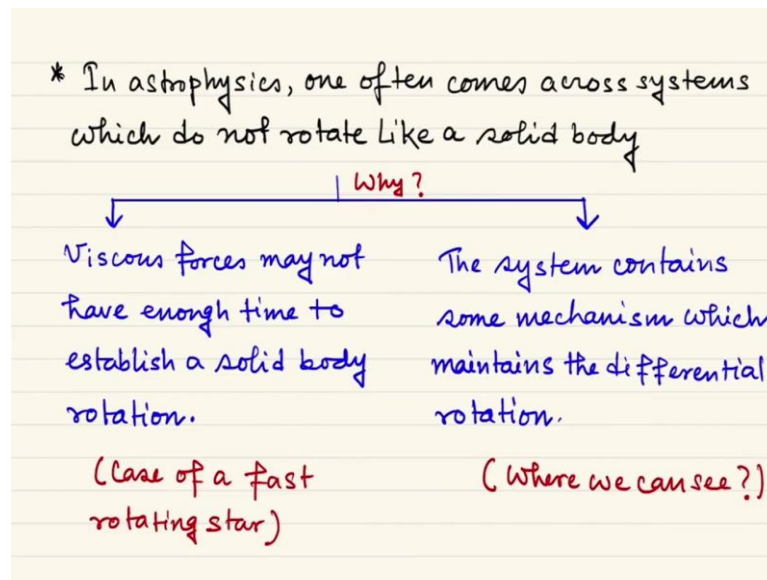 * In astrophysics, one often comes across systems
which do not rotate like a solid body
Why?
Viscous forces may not
have enough time to
establish a solid body
rotation.
(Case of a fast
rotating star)
The system contains
some mechanism which
maintains the differential
rotation.
(Where we can see?)